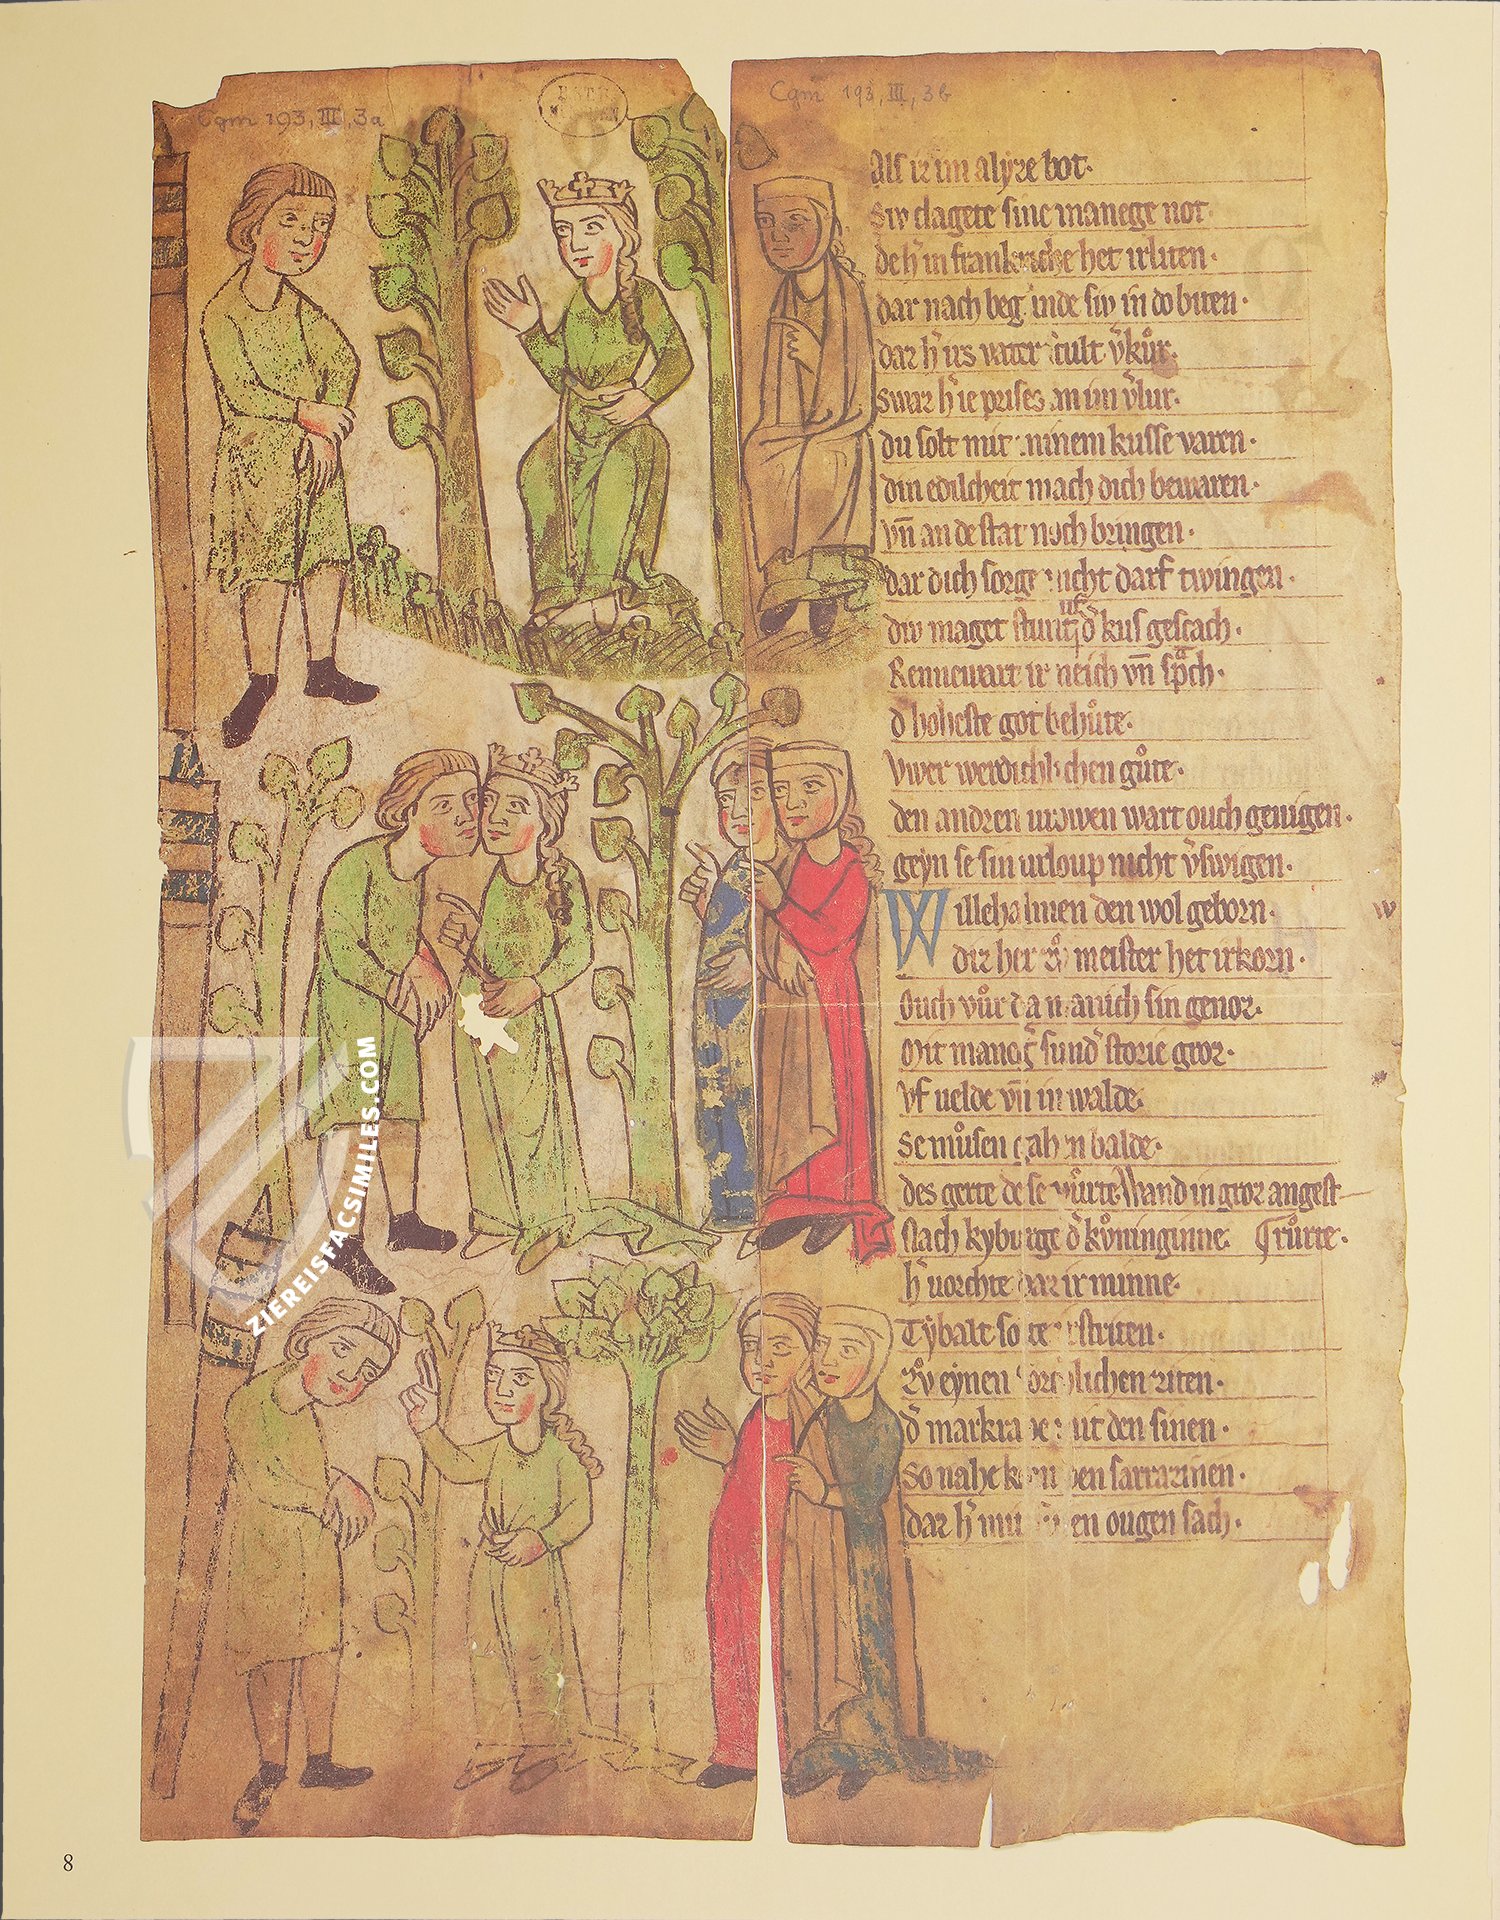 Cgm 193, III, 3a
Cgm 193, III, 3b
Als ir im alyze bot·
Siv clagete sine manege not
de h͛ in frankriche het irliten·
dar nach begunde siv in do biten·
dar h͛ irs vater schult v͛kuͦr·
Swar h͛ ie prises an im v͛lur·
du solt mit minem kusse varen·
din edilcheit mach dich bewaren·
vn̄ an de stat noch bringen·
dar dich sorge nicht darf twingen·
div maget stunt uf d͛ kus gescach·
Rennewart ir neich vn̄ sprach·
d͛ hoheste got behuͦte·
vwer werdichlichen guͦte·
den andren urowen wart ouch genigen·
geyn se sin urloup nicht v͛swigen·
Willehalmen den wol geborn·
dir her zv meister het irkorn·
Ouch vuͦr dan manich sin genoz·
Mit maneg͛ sund͛ storie groz·
vf uelde vn̄ in walde·
Se muͦsen gahen balde·
des gerte de se vuͦrte Wand in groz angest
nach kyburge d͛ kuͦninginne· ruͦrte·
h͛ uorchte daz ir minne·
Tybalt solte erstriten·
Zv eynen
d͛ markrave mit den sinen·
So nahe den sarrazinen·
daz h͛ mit ougen sach·
w
ZIEREISFACSIMILES.COM
8